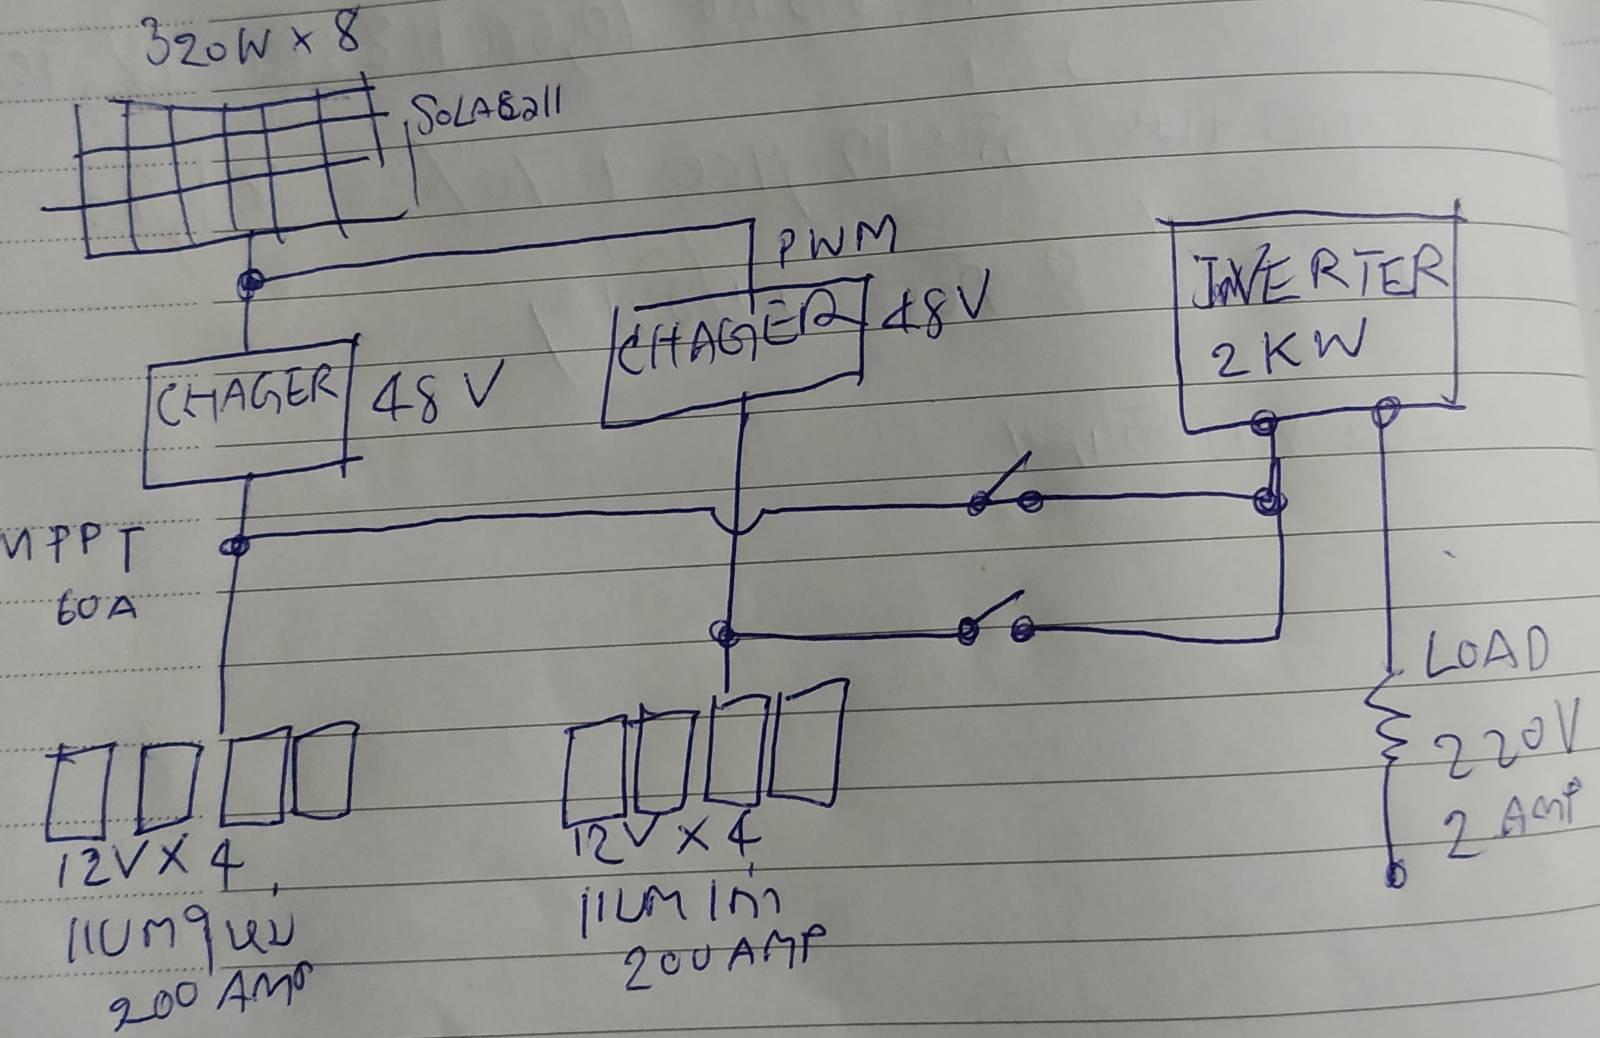 320W x 8
PWM
INVERTER
2 KW
CHAGER 48V
CHAGER 48V
MPPT
60A
LOAD
220V
2 AMP
12V X 4
แบตใหม่
200 AMP
12V X 4
แบตเก่า
200 AMP